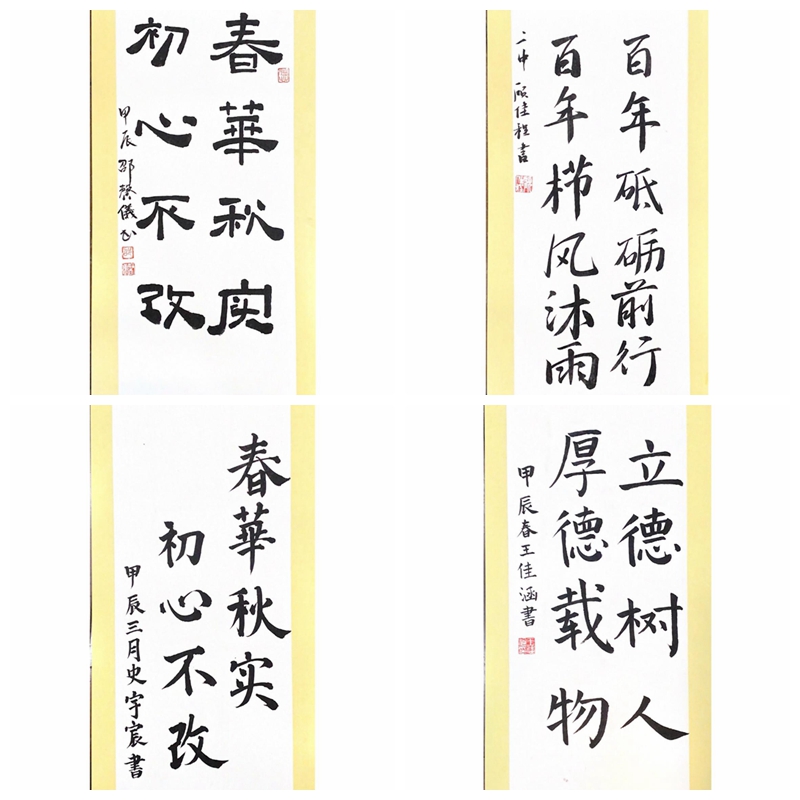 春華秋实
初心不改
甲辰 邵馨儀书
百年砥砺前行
百年栉风沐雨
二中 顾佳程書
春華秋实
初心不改
甲辰三月史宇宸書
立德树人
厚德载物
甲辰春王佳涵書